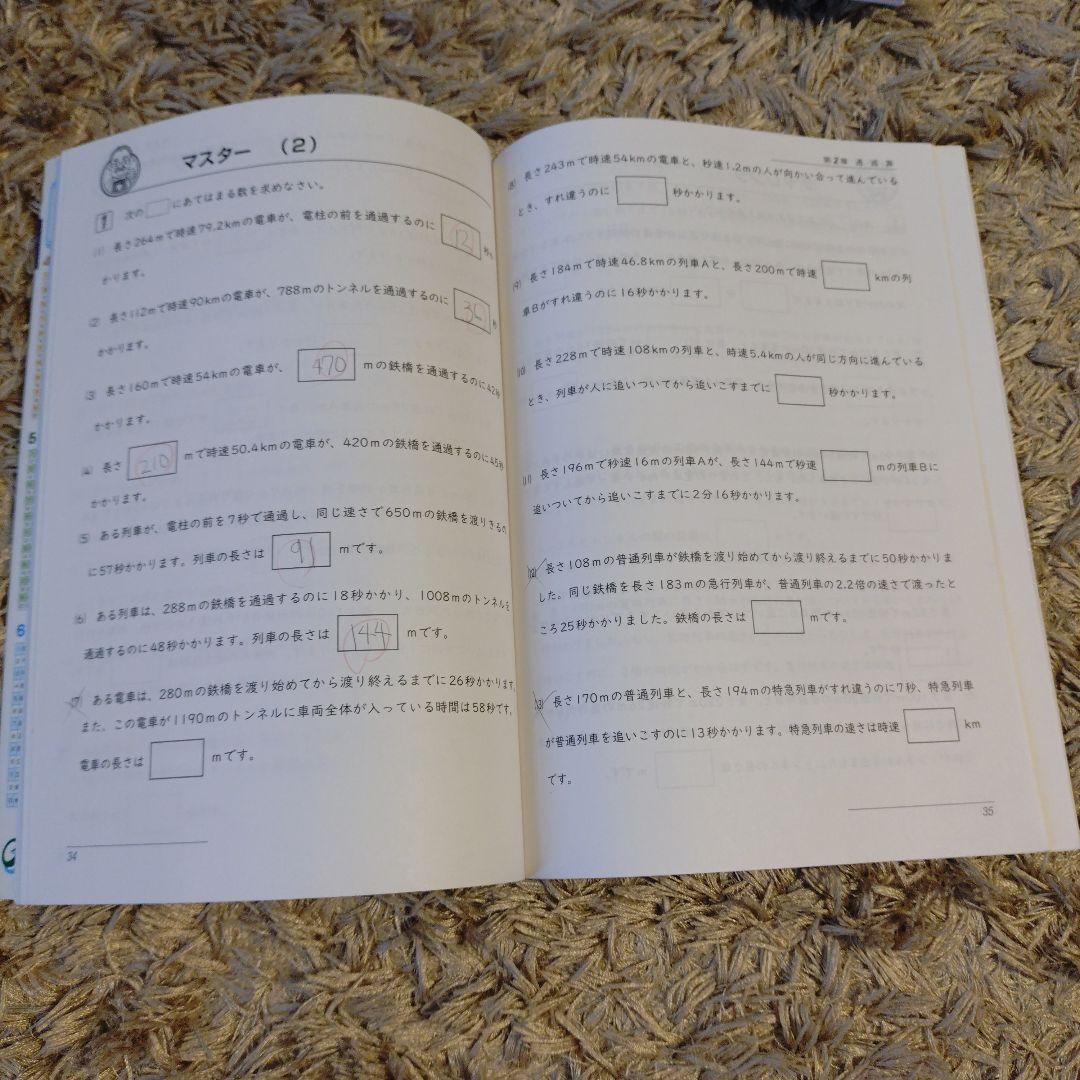 マスター (2)
次の□にあてはまる数を求めなさい。
(1) 長さ264mで時速79.2kmの電車が、電柱の前を通過するのに 12 秒
かります。
(2) 長さ112mで時速90kmの電車が、788mのトンネルを通過するのに 36 秒
かかります。
(3) 長さ160mで時速54kmの電車が、 470 mの鉄橋を通過するのに42秒
かかります。
(4) 長さ 210 mで時速50.4kmの電車が、420mの鉄橋を通過するのに45秒
かかります。
(5) ある列車が、電柱の前を7秒で通過し、同じ速さで650mの鉄橋を渡りきるの
に57秒かかります。列車の長さは 91 mです。
(6) ある列車は、288mの鉄橋を通過するのに18秒かかり、1008mのトンネルを
通過するのに48秒かかります。列車の長さは 144 mです。
(7) ある電車は、280mの鉄橋を渡り始めてから渡り終えるまでに26秒かかります。
また、この電車が1190mのトンネルに車両全体が入っている時間は58秒です。
電車の長さは□mです。
34
第2章 通過算
(8) 長さ243mで時速54kmの電車と、秒速1.2mの人が向かい合って進んでいる
とき、すれ違うのに□秒かかります。
(9) 長さ184mで時速46.8kmの列車Aと、長さ200mで時速□kmの列
車Bがすれ違うのに16秒かかります。
(10) 長さ228mで時速108kmの列車と、時速5.4kmの人が同じ方向に進んでいる
とき、列車が人に追いついてから追いこすまでに□秒かかります。
(11) 長さ196mで秒速16mの列車Aが、長さ144mで秒速□mの列車Bに
追いついてから追いこすまでに2分16秒かかります。
(12) 長さ108mの普通列車が鉄橋を渡り始めてから渡り終えるまでに50秒かかりま
した。同じ鉄橋を長さ183mの急行列車が、普通列車の2.2倍の速さで渡ったと
ころ25秒かかりました。鉄橋の長さは□mです。
(13) 長さ170mの普通列車と、長さ194mの特急列車がすれ違うのに7秒、特急列車
が普通列車を追いこすのに13秒かかります。特急列車の速さは時速□km
です。
35
5
6